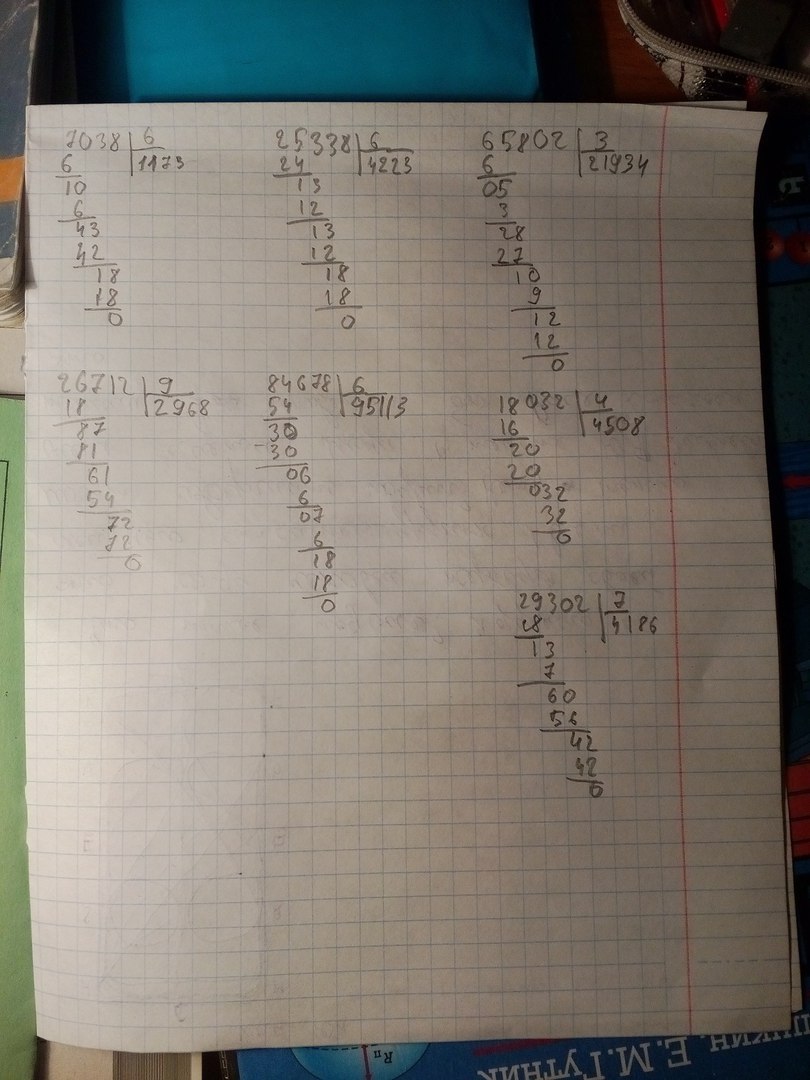 7038 6
6 1173
10
6
43
42
18
18
0
25338 6
24 4223
13
12
13
12
18
18
0
65802 3
6 21934
05
3
28
27
10
9
12
12
0
26712 9
18 2968
87
81
61
54
72
72
0
84678 6
54 95113
30
30
06
6
07
6
18
18
0
18032 4
16 4508
20
20
032
32
0
29302 7
28 4186
13
7
60
56
42
42
0
Rп
Е.М.ГУТНИК